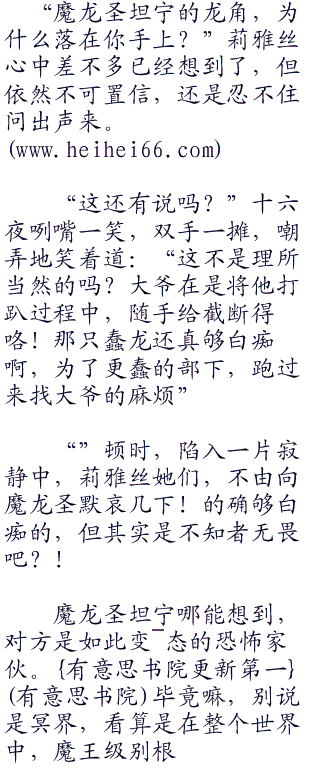 “魔龙圣坦宁的龙角，为
什么落在你手上？”莉雅丝
心中差不多已经想到了，但
依然不可置信，还是忍不住
问出声来。
(www.heihei66.com)
“这还有说吗？”十六
夜咧嘴一笑，双手一摊，嘲
弄地笑着道：“这不是理所
当然的吗？大爷在是将他打
趴过程中，随手给截断得
咯！那只蠢龙还真够白痴
啊，为了更蠢的部下，跑过
来找大爷的麻烦”
“”顿时，陷入一片寂
静中，莉雅丝她们，不由向
魔龙圣默哀几下！的确够白
痴的，但其实是不知者无畏
吧？！
魔龙圣坦宁哪能想到，
对方是如此变¯态的恐怖家
伙。{有意思书院更新第一}
(有意思书院)毕竟嘛，别说
是冥界，看算是在整个世界
中，魔王级别根